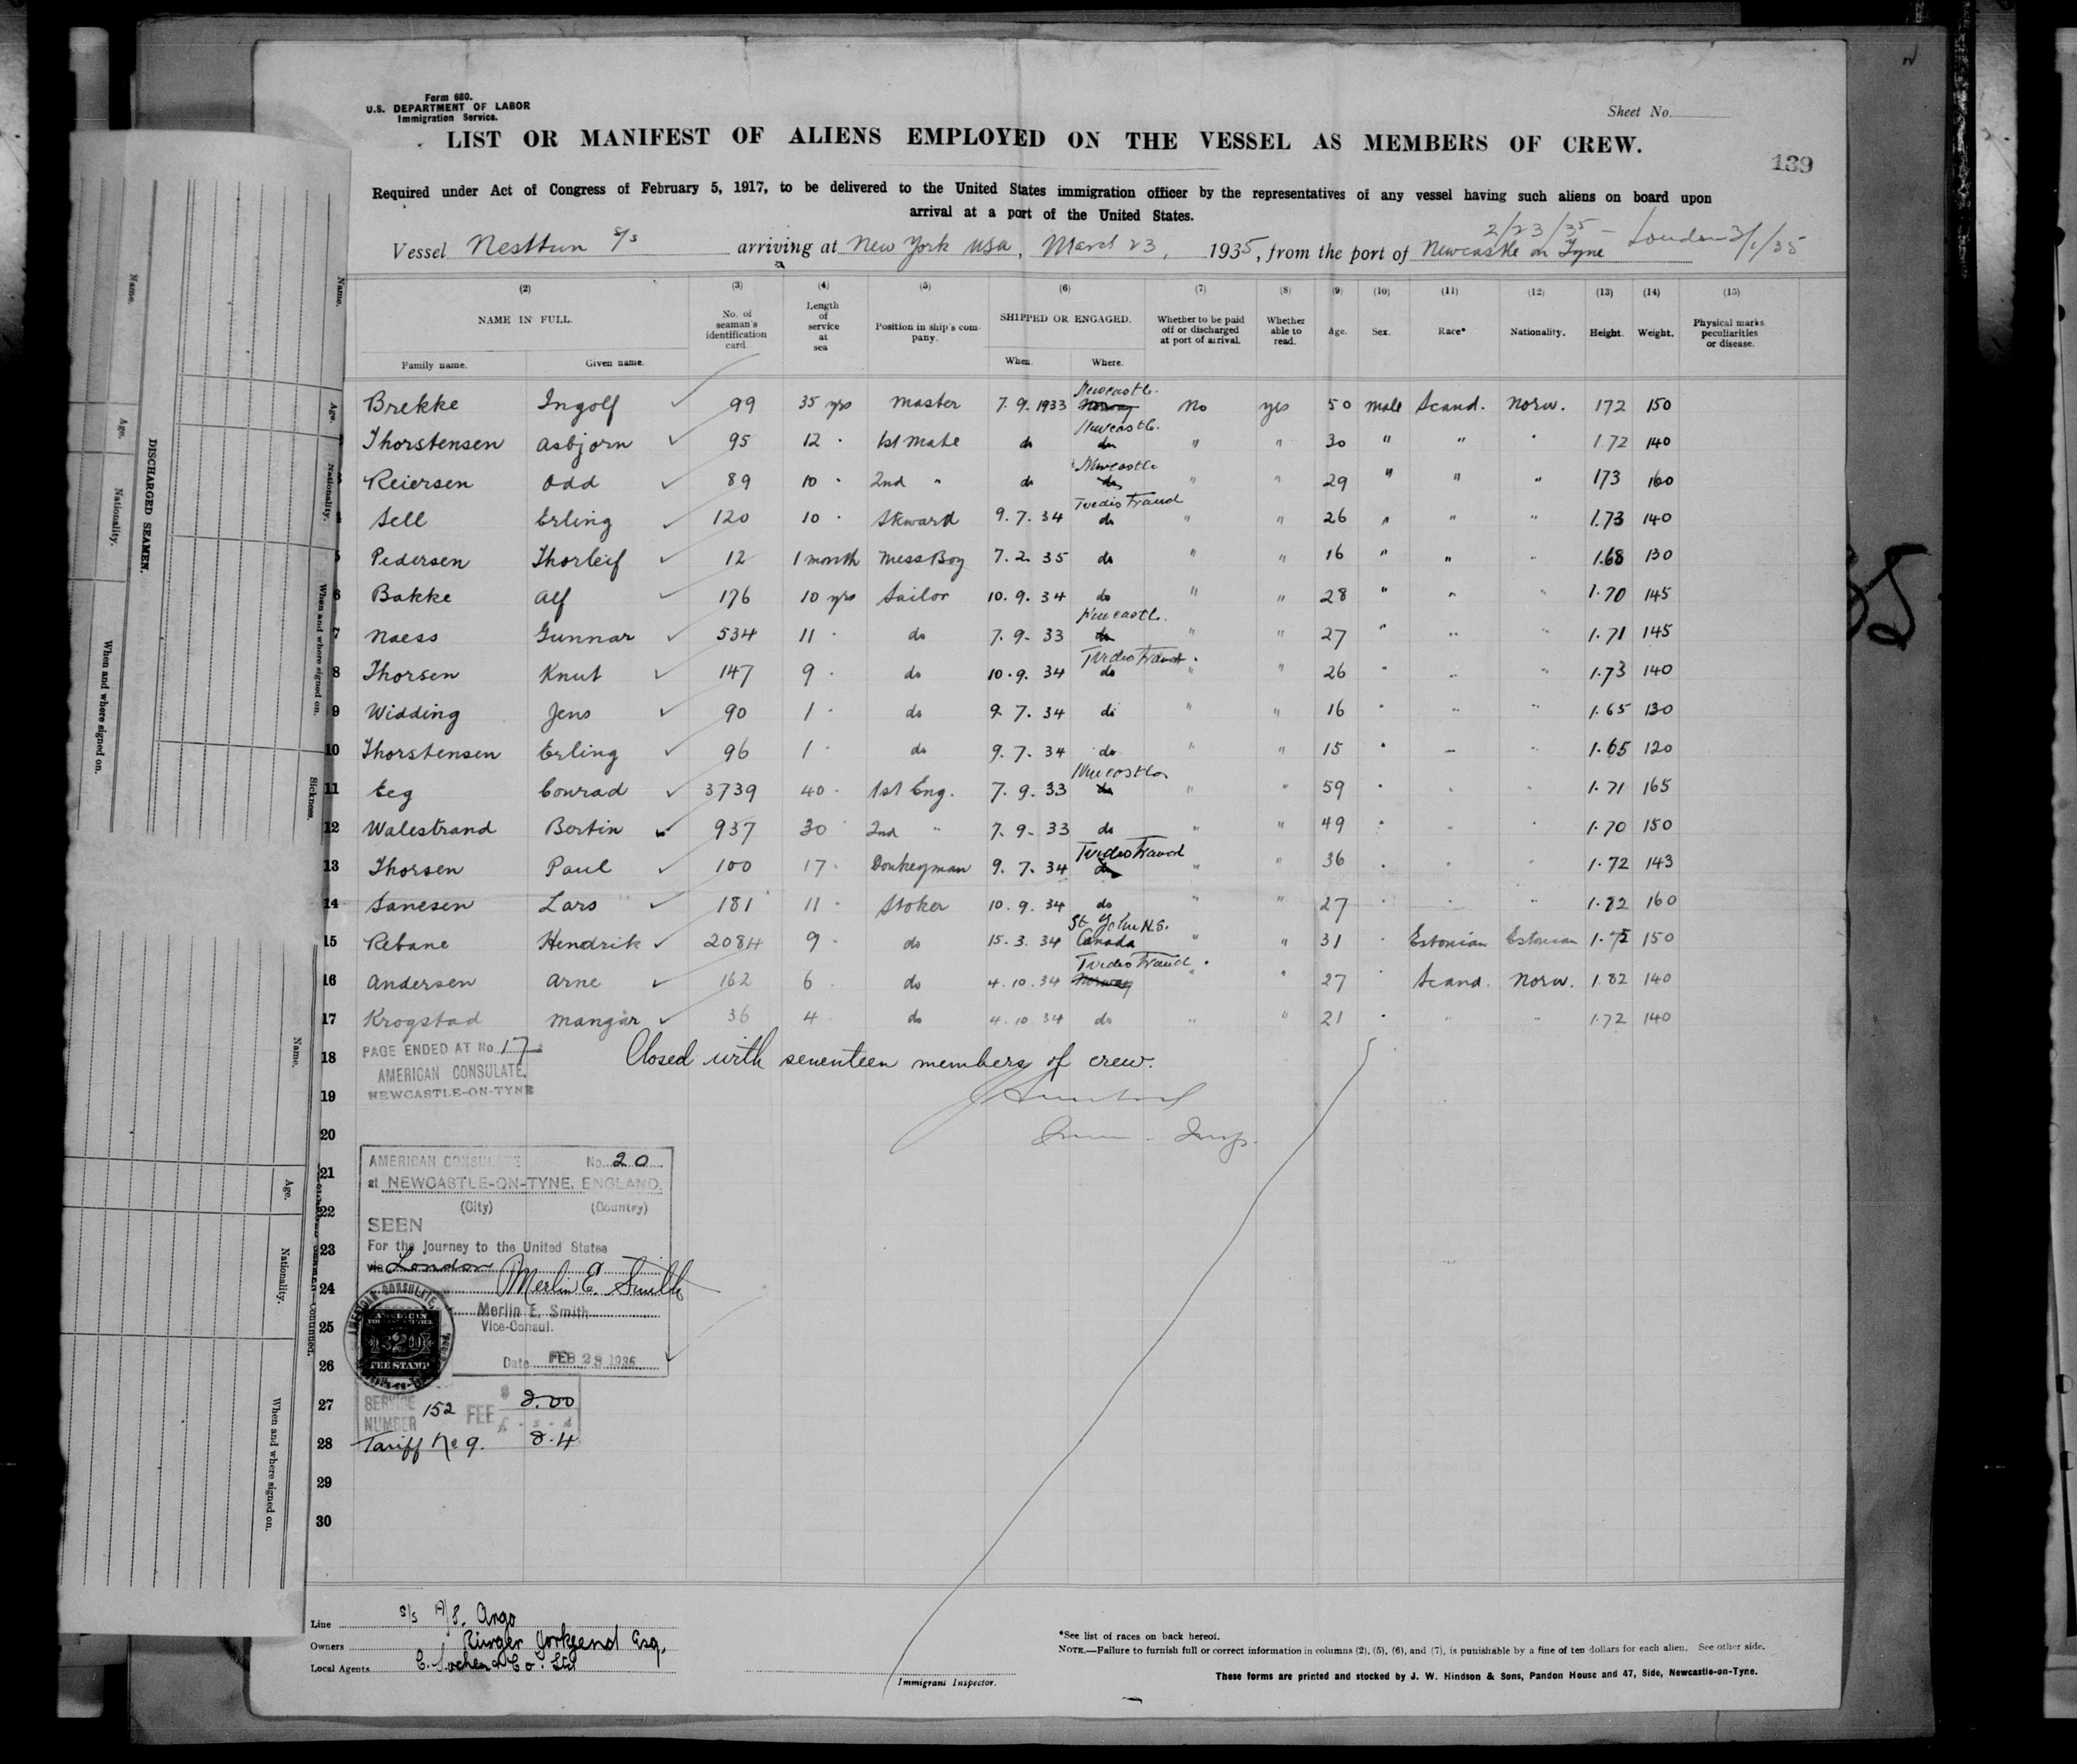 Form 680.
U.S. DEPARTMENT OF LABOR
Immigration Service.
Sheet No.
LIST OR MANIFEST OF ALIENS EMPLOYED ON THE VESSEL AS MEMBERS OF CREW.
139
Required under Act of Congress of February 5, 1917, to be delivered to the United States immigration officer by the representatives of any vessel having such aliens on board upon
arrival at a port of the United States.
2/23/35 - London 3/1/35
Vessel Nesttun S/S arriving at New York USA, March 23, 1935, from the port of Newcastle on Tyne
(2) (3) (4) (5) (6) (7) (8) (9) (10) (11) (12) (13) (14) (15)
NAME IN FULL. No. of seaman's identification card. Length of service at sea Position in ship's company. SHIPPED OR ENGAGED. Whether to be paid off or discharged at port of arrival. Whether able to read. Age. Sex. Race* Nationality. Height. Weight. Physical marks, peculiarities or disease.
Family name. Given name. When. Where.
Brekke Ingolf 99 35 yrs Master 7.9.1933 Newcastle. Norway No yes 50 male Scand. Norw. 172 150
Thorstensen Asbjorn 95 12 " 1st Mate do Newcastle. do " " 30 " " " 1.72 140
3 Reiersen Odd 89 10 " 2nd " do Newcastle do " " 29 " " " 173 160
4 Sell Erling 120 10 " Steward 9.7.34 Tvedestrand do " " 26 " " " 1.73 140
5 Pedersen Thorleif 12 1 month Mess Boy 7.2.35 do " " 16 " " " 1.68 130
6 Bakke Alf 176 10 yrs Sailor 10.9.34 do " " 28 " " " 1.70 145
7 Naess Gunnar 534 11 " do 7.9.33 Newcastle. do " " 27 " " " 1.71 145
8 Thorsen Knut 147 9 " do 10.9.34 Tvedestrand. do " " 26 " " " 1.73 140
9 Widding Jens 90 1 " do 9.7.34 do " " 16 " " " 1.65 130
10 Thorstensen Erling 96 1 " do 9.7.34 do " " 15 " " " 1.65 120
11 Eeg Conrad 3739 40 " 1st Eng. 7.9.33 Newcastle do " " 59 " " " 1.71 165
12 Walestrand Bertin 937 30 " 2nd " 7.9.33 do " " 49 " " " 1.70 150
13 Thorsen Paul 100 17 " Donkeyman 9.7.34 Tvedestrand do " " 36 " " " 1.72 143
14 Sanesen Lars 181 11 " Stoker 10.9.34 do " " 27 " " " 1.82 160
15 Rebane Hendrik 2084 9 " do 15.3.34 St John N.S. Canada " " 31 " Estonian Estonian 1.75 150
16 Andersen Arne 162 6 " do 4.10.34 Tvedestrand. Norway " " 27 " Scand. Norw. 1.82 140
17 Krogstad Mangor 36 4 " do 4.10.34 do " " 21 " " " 1.72 140
PAGE ENDED AT No. 17
18 Closed with seventeen members of crew.
AMERICAN CONSULATE.
NEWCASTLE-ON-TYNE
19
20
Imm. Insp.
21 AMERICAN CONSULATE No. 20
at NEWCASTLE-ON-TYNE, ENGLAND.
22 (City) (Country)
SEEN
23 For the Journey to the United States
via London
24 Merlin E. Smith
Merlin E. Smith
25 Vice-Consul.
26 Date FEB 23 1935
AMERICAN CONSULATE
FEE STAMP
27 SERVICE NUMBER 152 FEE $ 2.00
£ - s - d
28 Tariff No 9. 8.4
29
30
Line S/S A/S. Argo
Owners
Local Agents
Immigrant Inspector.
*See list of races on back hereof.
NOTE.—Failure to furnish full or correct information in columns (2), (5), (6), and (7), is punishable by a fine of ten dollars for each alien. See other side.
These forms are printed and stocked by J. W. Hindson & Sons, Pandon House and 47, Side, Newcastle-on-Tyne.
DISCHARGED SEAMEN.
Name.
Age.
Nationality.
When and where signed on.
Name.
Age.
Nationality.
When and where signed on.
Sickness.
Name.
Age.
Nationality.
When and where signed on.